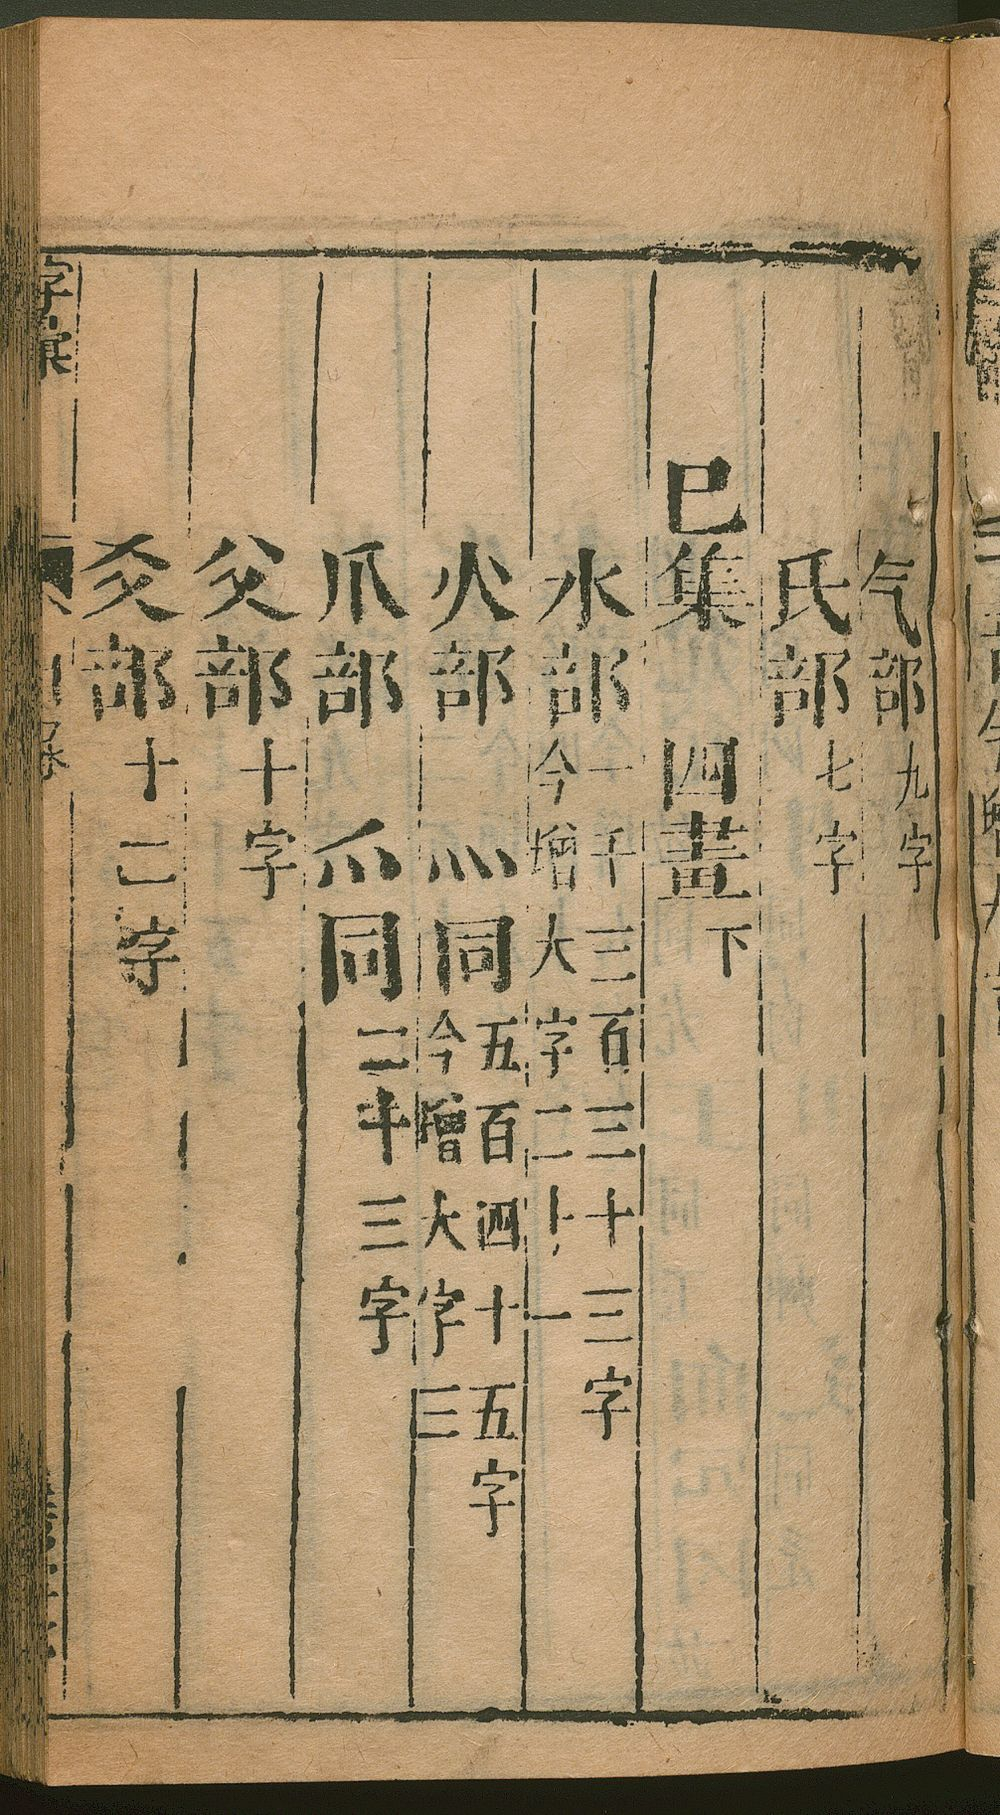 气部九字
氏部七字
巳集 四畫下
水部一千三百三十三字
今增大字二十一
火部 灬同五百四十五字
今增大字三
爪部 爫同二十三字
父部十字
爻部十二字
字彙